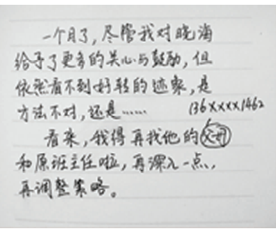 一个月了，尽管我对晓海
给予了更多的关心与鼓励，但
依然看不到好转的迹象，是
方法不对，还是……
136xxxx1462
看来，我得再找他的父母
和原班主任啦，再深入一点，
再调整策略。